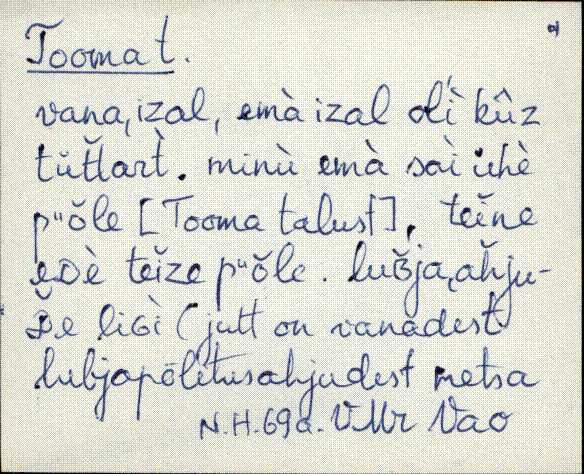 Tooma t.
vana, izal, emà izal olì kûz
tŭt̆lart̀. minù emà sai ühè
pᵘŏle [Tooma talust], tĕine
eᴅè tĕize pᵘŏle. luʙ̆ja, ahju-
ᴅ̆e liɢì (jutt on vanadest
lubjapõletusahjudest metsa
N.H. 69a. VMr Vao